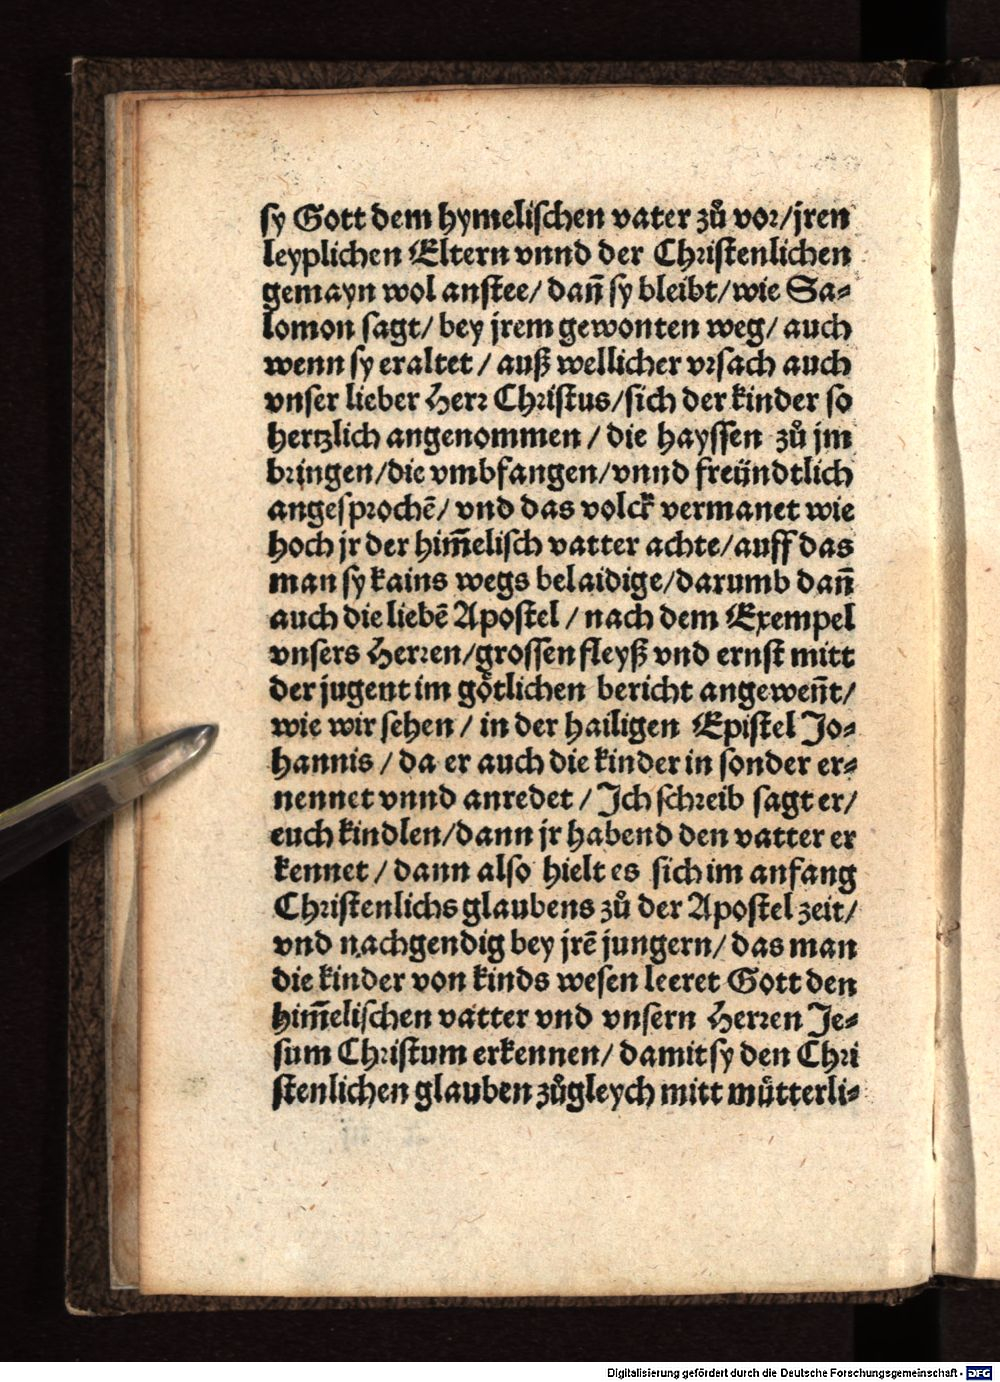 sy Gott dem hymelischen vater zů vor/jren
leyplichen Eltern vnnd der Christenlichen
gemayn wol anstee/ dañ sy bleibt/wie Sa-
lomon sagt/ bey jrem gewonten weg/ auch
wenn sy eraltet / auß wellicher vrsach auch
vnser lieber Herr Christus/sich der kinder so
hertzlich angenommen / die hayssen zů jm
bringen/die vmbfangen/vnnd freündtlich
angesprochē/ vnd das volck vermanet wie
hoch jr der him̃elisch vatter achte/auff das
man sy kains wegs belaidige/darumb dañ
auch die liebē Apostel / nach dem Exempel
vnsers Herren/grossen fleyß vnd ernst mitt
der jugent im gȯtlichen bericht angeweñt/
wie wir sehen / in der hailigen Epistel Jo-
hannis / da er auch die kinder in sonder er-
nennet vnnd anredet / Jch schreib sagt er/
euch kindlen/dann jr habend den vatter er
kennet / dann also hielt es sich im anfang
Christenlichs glaubens zů der Apostel zeit/
vnd nachgendig bey jrē jungern/ das man
die kinder von kinds wesen leeret Gott den
him̃elischen vatter vnd vnsern Herren Je-
sum Christum erkennen/ damit sy den Chri
stenlichen glauben zůgleych mitt mütterli-
Digitalisierung gefördert durch die Deutsche Forschungsgemeinschaft - DFG